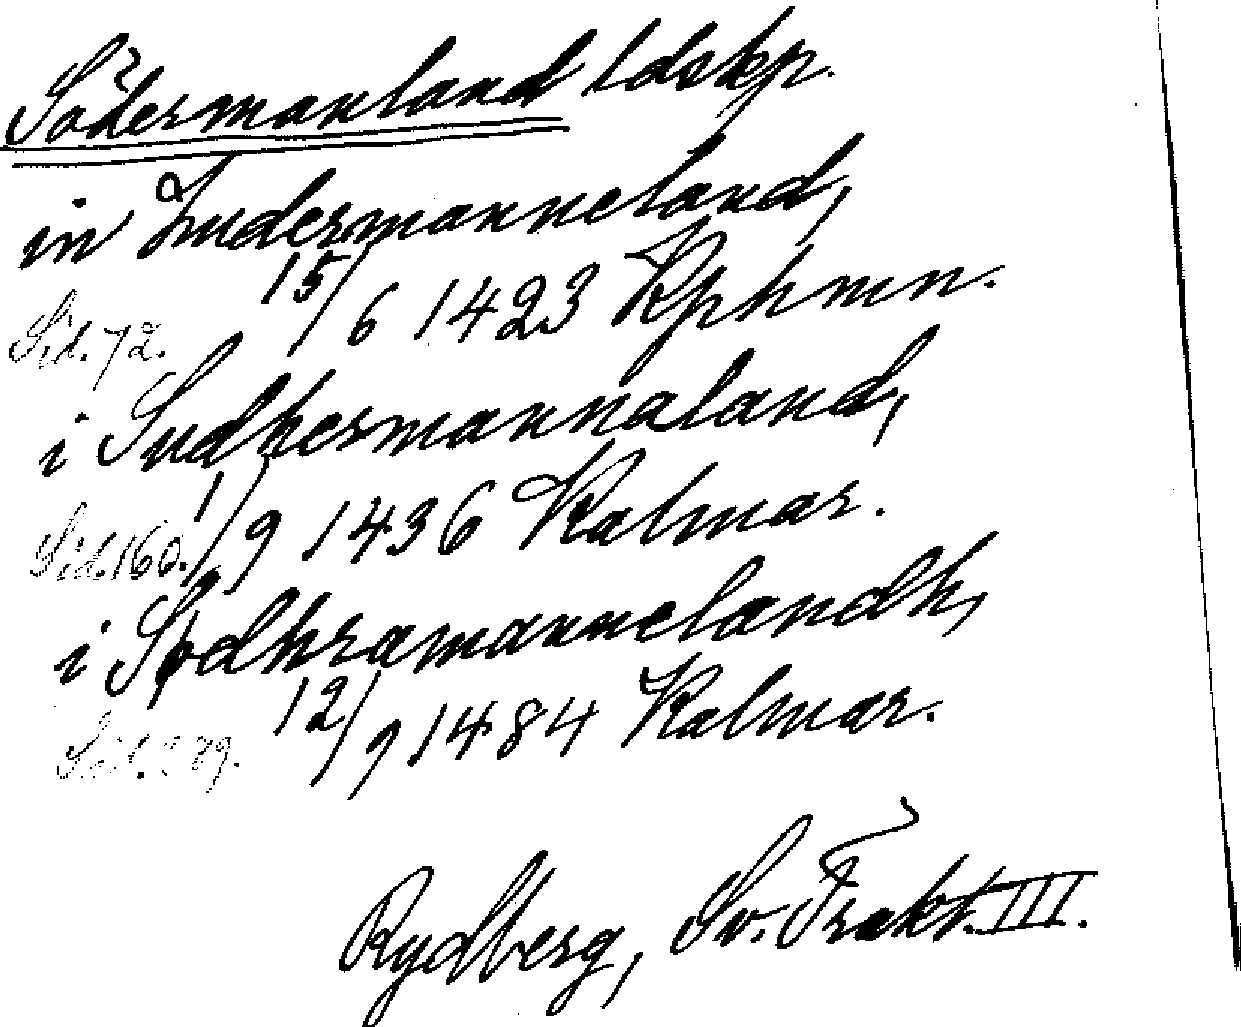 Södermanland ldskp.
in Sudermanneland,
15/6 1423 Kphmn.
Sid. 72.
i Sudhermannaland,
1/9 1436 Kalmar.
Sid. 160.
i Sødhramannelandh,
12/9 1484 Kalmar.
Rydberg, Sv. Trakt. III.